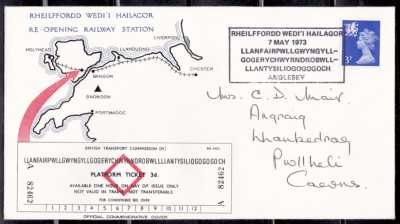 RHEILFFORDD WEDI'I HAILAGOR
RE-OPENING RAILWAY STATION
HOLYHEAD
LLANDUDNO
LIVERPOOL
BANGOR
CHESTER
SNOWDON
PORTMADOC
RHEILFFORDD WEDI'I HAILAGOR
7 MAY 1973
LLANFAIRPWLLGWYNGYLL-
GOGERYCHWYRNDROBWLL-
LLANTYSILIOGOGOGOCH
ANGLESEY
3P
Mrs. C. D. Mair,
Angraig
Llanbedrog
Pwllheli
Caerns.
BRITISH TRANSPORT COMMISSION (M)
LLANFAIRPWLLGWYNGYLLGOGERYCHWYRNDROBWLLLLANTYSILIOGOGOGOCH
PLATFORM TICKET 3d.
AVAILABLE ONE HOUR ON DAY OF ISSUE ONLY
NOT VALID IN TRAINS NOT TRANSFERABLE
FOR CONDITIONS SEE OVER
A 82462
A 82462
1 2 3 4 5 6 7 8 9 10 11 12
OFFICIAL COMMEMORATIVE COVER